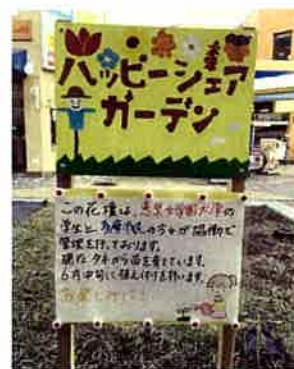 ハッピーシェア
ガーデン
この花壇は、恵泉女学園大学の
学生と多摩市民の方々が協働で
管理を行っております。
現在タネから苗を育てています。
6月中旬に植え付けを行います。
お楽しみに!